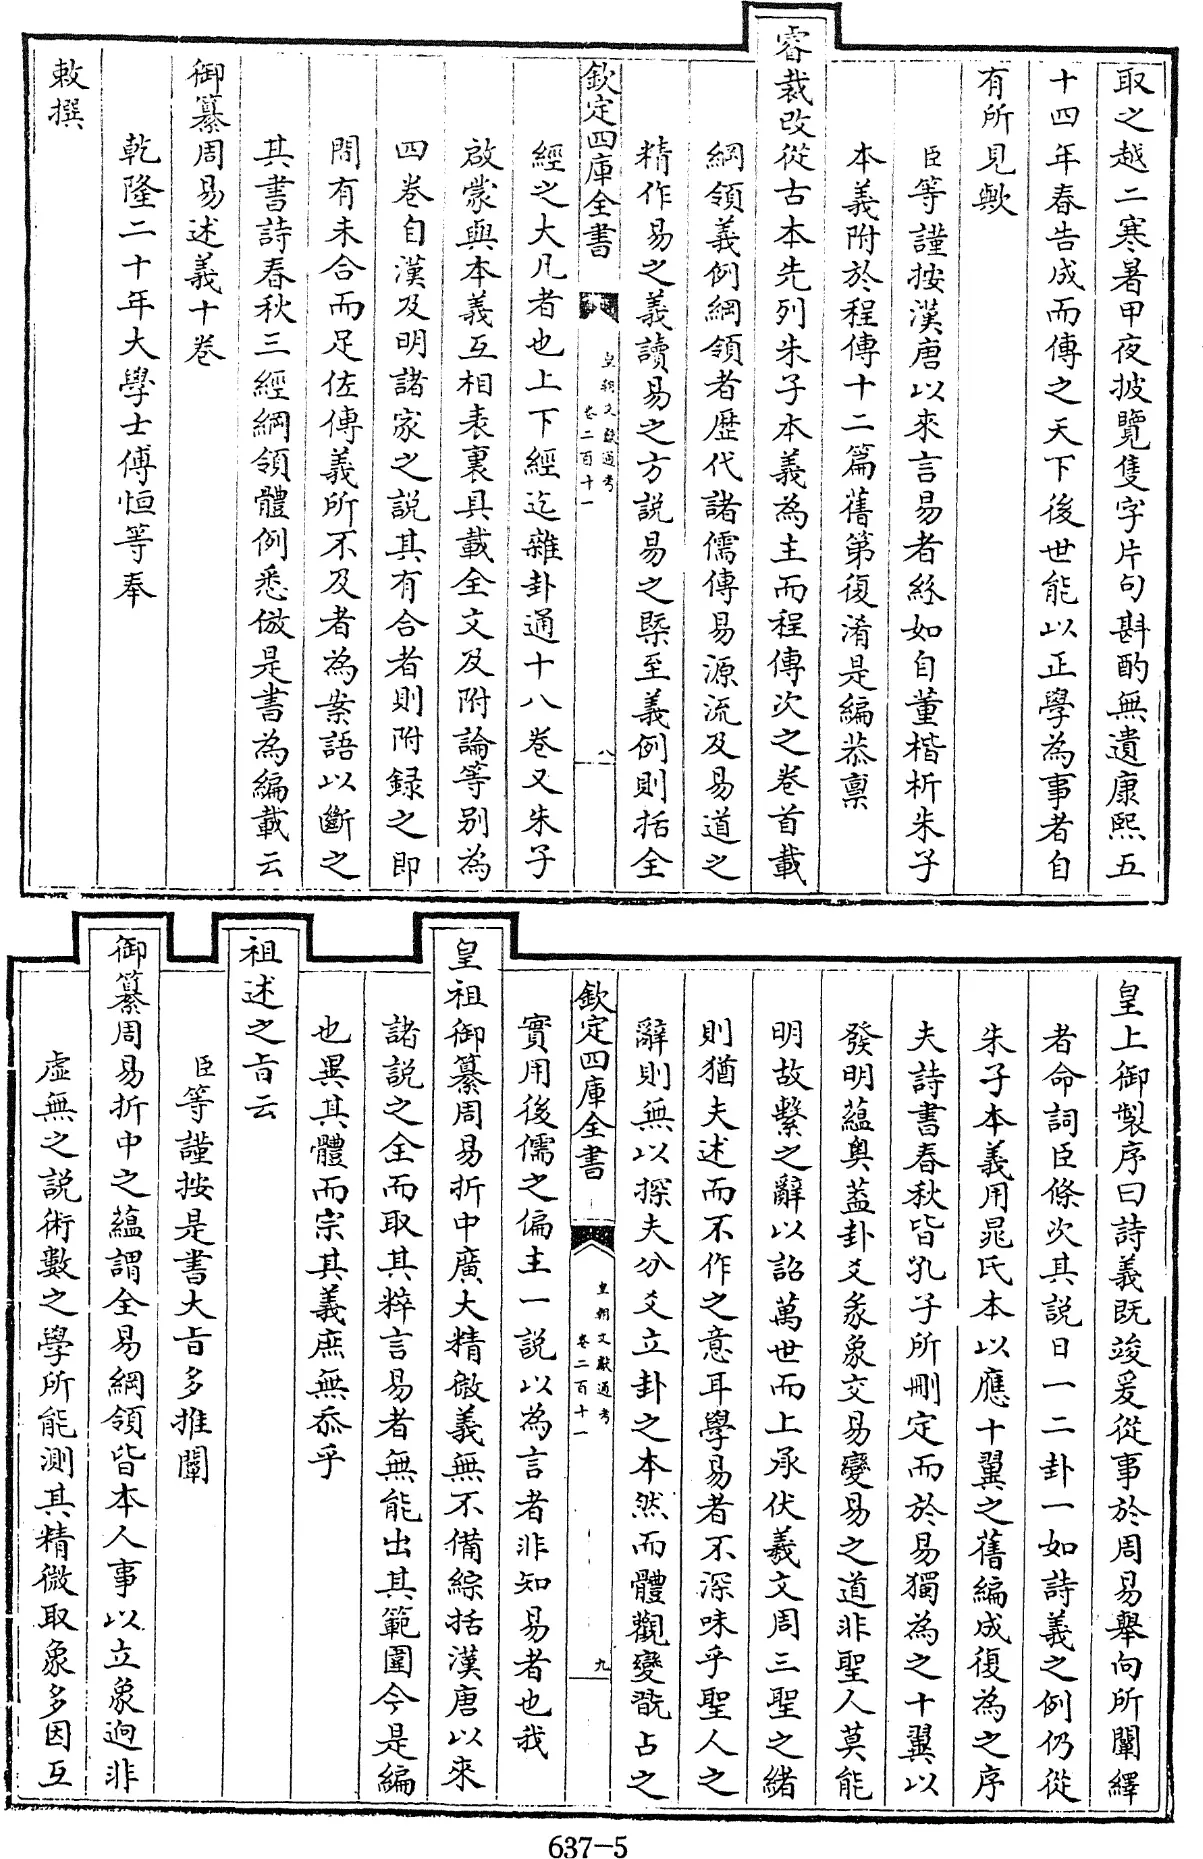 取之越二寒暑甲夜披覽隻字片句斟酌無遺康熙五
十四年春告成而傳之天下後世能以正學為事者自
有所見歟
臣等謹按漢唐以來言易者紛如自董楷析朱子
本義附於程傳十二篇舊第復淆是編恭稟
睿裁改從古本先列朱子本義為主而程傳次之卷首載
綱領義例綱領者歷代諸儒傳易源流及易道之
精作易之義讀易之方説易之槩至義例則括全
欽定四庫全書
皇朝文獻通考
卷二百十一
八
經之大凡者也上下經迄雜卦通十八卷又朱子
啟蒙與本義互相表裏具載全文及附論等别為
四卷自漢及明諸家之説其有合者則附録之即
間有未合而足佐傳義所不及者為案語以斷之
其書詩春秋三經綱領體例悉倣是書為編載云
御纂周易述義十卷
乾隆二十年大學士傅恒等奉
敕撰
皇上御製序曰詩義既竣爰從事於周易舉向所闡繹
者命詞臣條次其説日一二卦一如詩義之例仍從
朱子本義用晁氏本以應十翼之舊編成復為之序
夫詩書春秋皆孔子所刪定而於易獨為之十翼以
發明蘊奥蓋卦爻彖象交易變易之道非聖人莫能
明故繫之辭以詔萬世而上承伏羲文周三聖之緒
則猶夫述而不作之意耳學易者不深味乎聖人之
辭則無以探夫分爻立卦之本然而體觀變翫占之
欽定四庫全書
皇朝文獻通考
卷二百十一
九
實用後儒之偏主一説以為言者非知易者也我
皇祖御纂周易折中廣大精微義無不備綜括漢唐以來
諸説之全而取其粹言易者無能出其範圍今是編
也異其體而宗其義庶無忝乎
祖述之旨云
臣等謹按是書大旨多推闡
御纂周易折中之蘊謂全易綱領皆本人事以立象迥非
虚無之説術數之學所能測其精微取象多因互
637-5